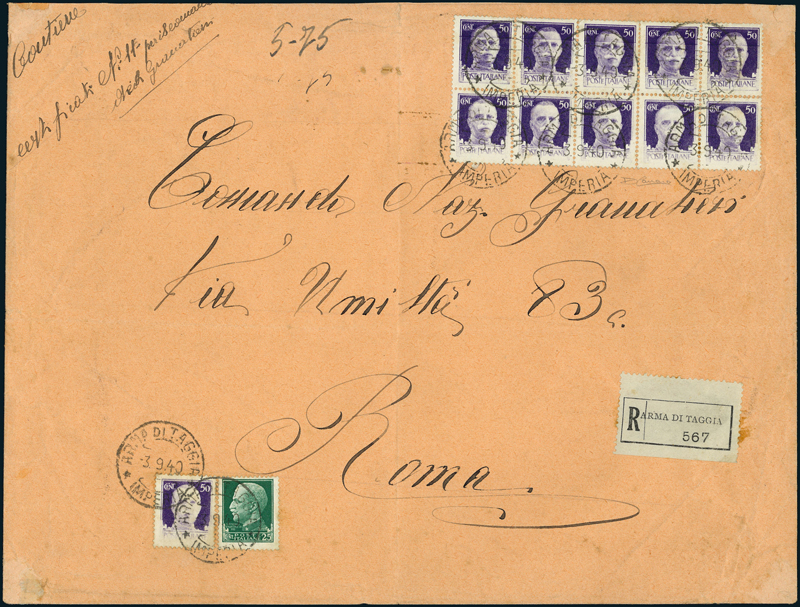 Contiene
certificati N. 11
dech Granatieri
5-75
CENT. 50 CENT. 50 CENT. 50 CENT. 50 CENT. 50
POSTE ITALIANE POSTE ITALIANE POSTE ITALIANE POSTE ITALIANE POSTE ITALIANE
50 50 50 50 50
POSTE ITALIANE POSTE ITALIANE POSTE ITALIANE POSTE ITALIANE POSTE ITALIANE
3.9.40
IMPERIA IMPERIA IMPERIA
Comando Naz. Granatieri
Via Umiltà 83c.
Roma
R ARMA DI TAGGIA
567
ARMA DI TAGGIA
-3.9.40
IMPERIA
CENT. 50
25